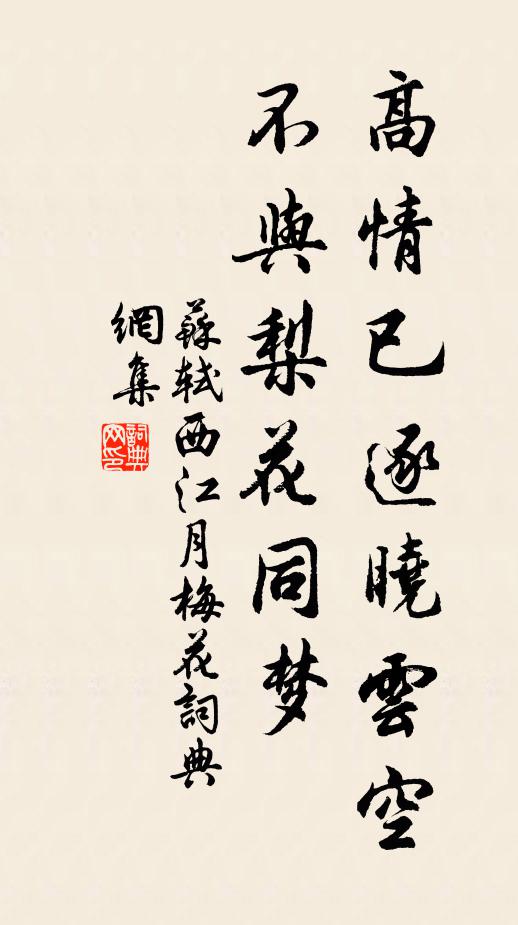 高情已逐曉雲空
不與梨花同梦
蘇軾西江月梅花詞典
網集
詞典
网印